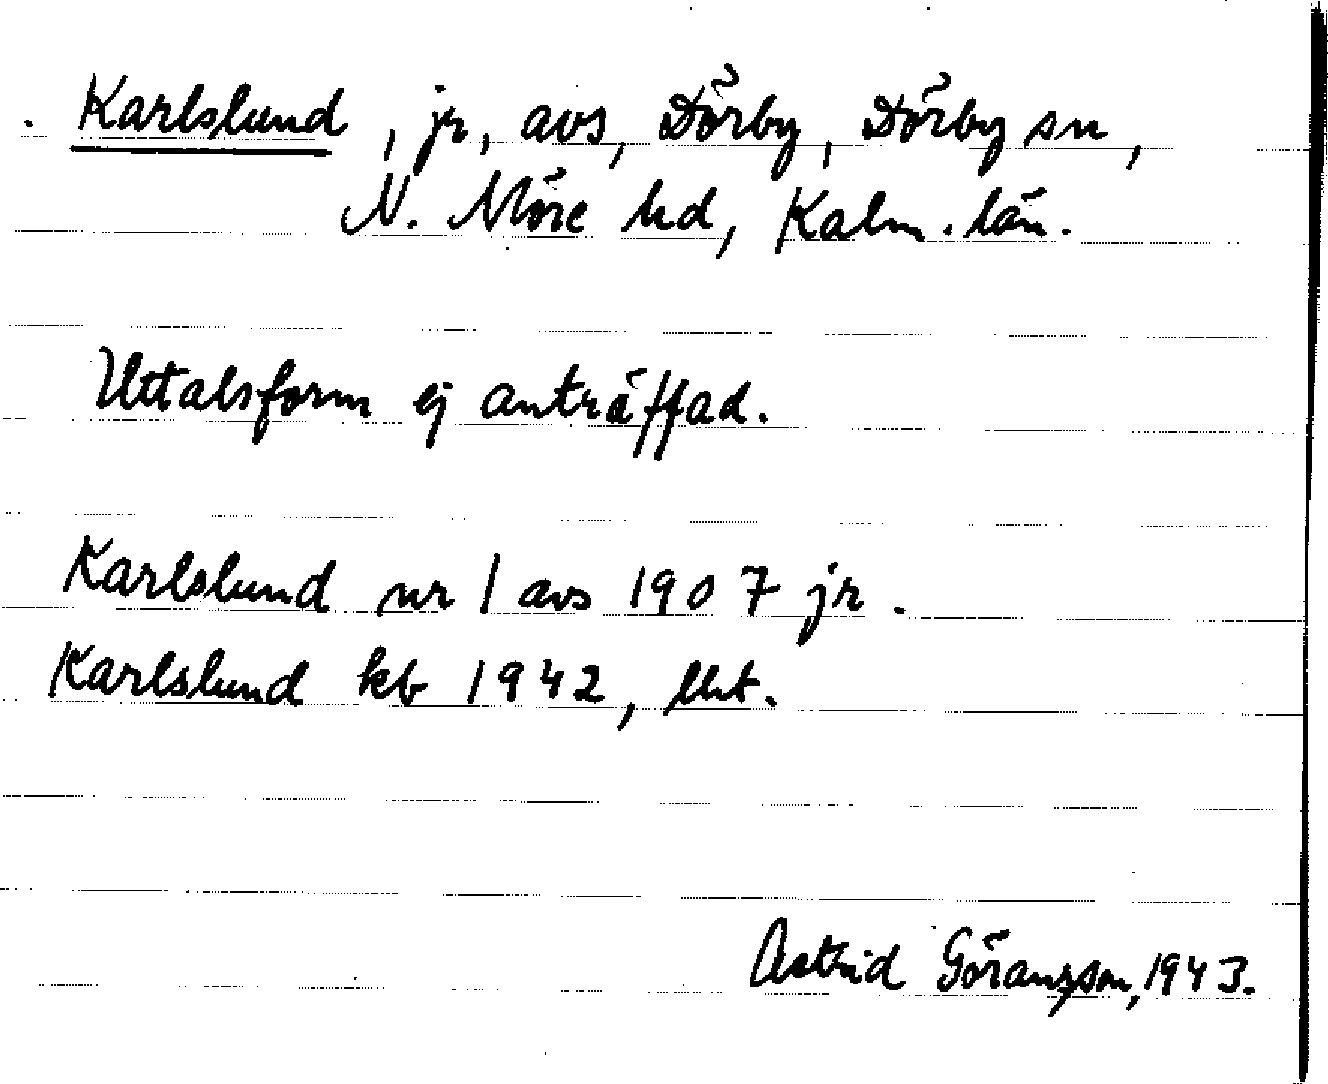 Karlslund, jr, avs, Dörby, Dörby sn,
N. Möre hd, Kalm. län.
Uttalsform ej anträffad.
Karlslund nr 1 avs 1907 jr.
Karlslund kb 1942, lht.
Astrid Göransson, 1943.